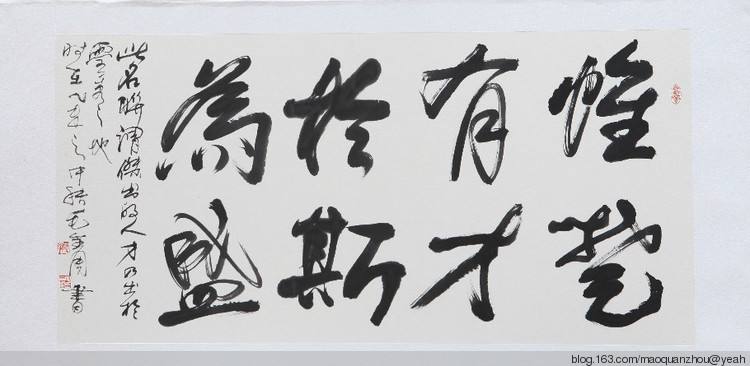 惟楚
有才
於斯
為盛
此名聯謂傑出的人才乃出於
之地
时在八年之中秋毛全周書
blog.163.com/maoquanzhou@yeah